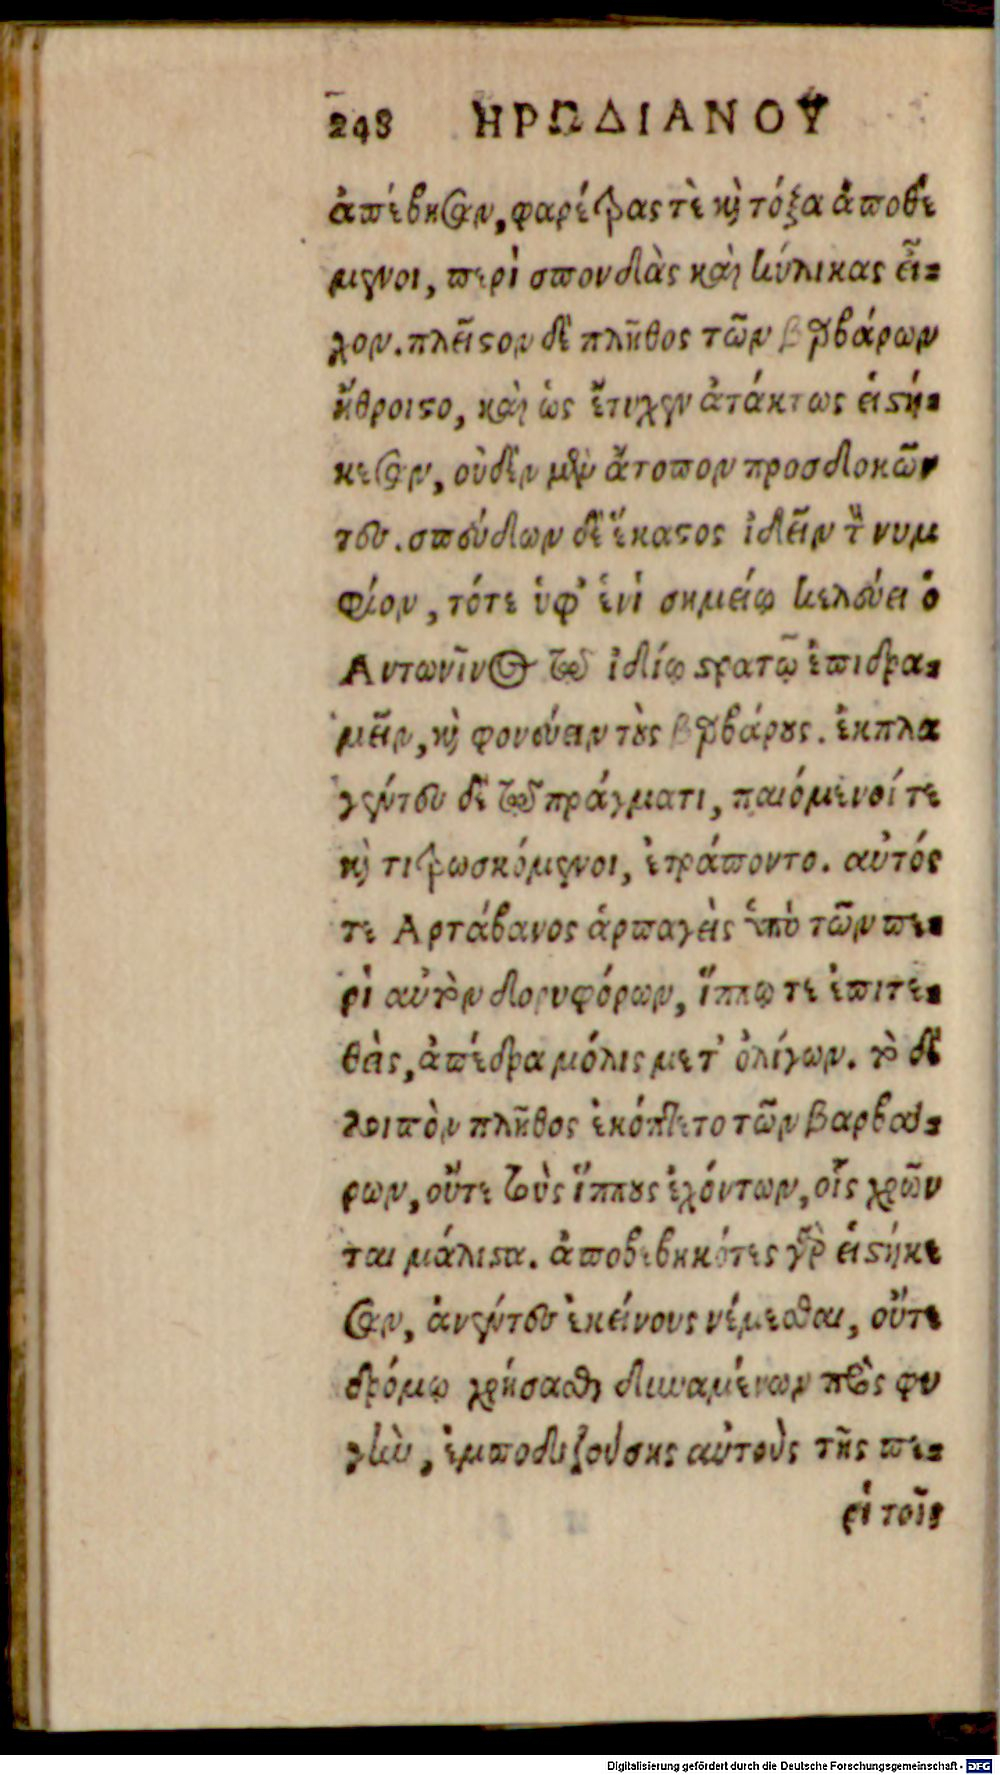 248 ΗΡΩΔΙΑΝΟΥ
ἀπέβησαν, φαρέτρας τὲ καὶ τόξα ἀποθέ
μενοι, περὶ σπονδὰς καὶ κύλικας εἶ-
χον. πλεῖστον δὲ πλῆθος τῶν βαρβάρων
ἤθροιστο, καὶ ὡς ἔτυχεν ἀτάκτως εἱστή-
κεσαν, οὐδὲν μὲν ἄτοπον προσδοκῶν
τες. σπεύδων δὲ ἕκαστος ἰδεῖν τὸν νυμ
φίον, τότε ὑφ' ἑνὶ σημείῳ κελεύει ὁ
Αντωνῖνος τῷ ἰδίῳ στρατῷ ἐπιδρα-
μεῖν, καὶ φονεύειν τοὺς βαρβάρους. ἐκπλα
γέντες δὲ τῷ πράγματι, παιόμενοί τε
καὶ τιτρωσκόμενοι, ἐτράποντο. αὐτός
τε Αρτάβανος ἁρπαγεὶς ὑπὸ τῶν πε-
ρὶ αὐτὸν δορυφόρων, ἵππῳ τε ἐπιτε-
θεὶς, ἀπέδρα μόλις μετ' ὀλίγων. τὸ δὲ
λοιπὸν πλῆθος ἐκόπτετο τῶν βαρβά-
ρων, οὔτε τοὺς ἵππους ἐχόντων, οἷς χρῶν
ται μάλιστα. ἀποβεβηκότες γὰρ εἱστήκε
σαν, ἀνέντες ἐκείνους νέμεσθαι, οὔτε
δρόμῳ χρήσασθαι δυναμένων πρὸς φυ
γὴν, ἐμποδιζούσης αὐτοὺς τῆς πε-
ρὶ τοῖς
Digitalisierung gefördert durch die Deutsche Forschungsgemeinschaft - DFG